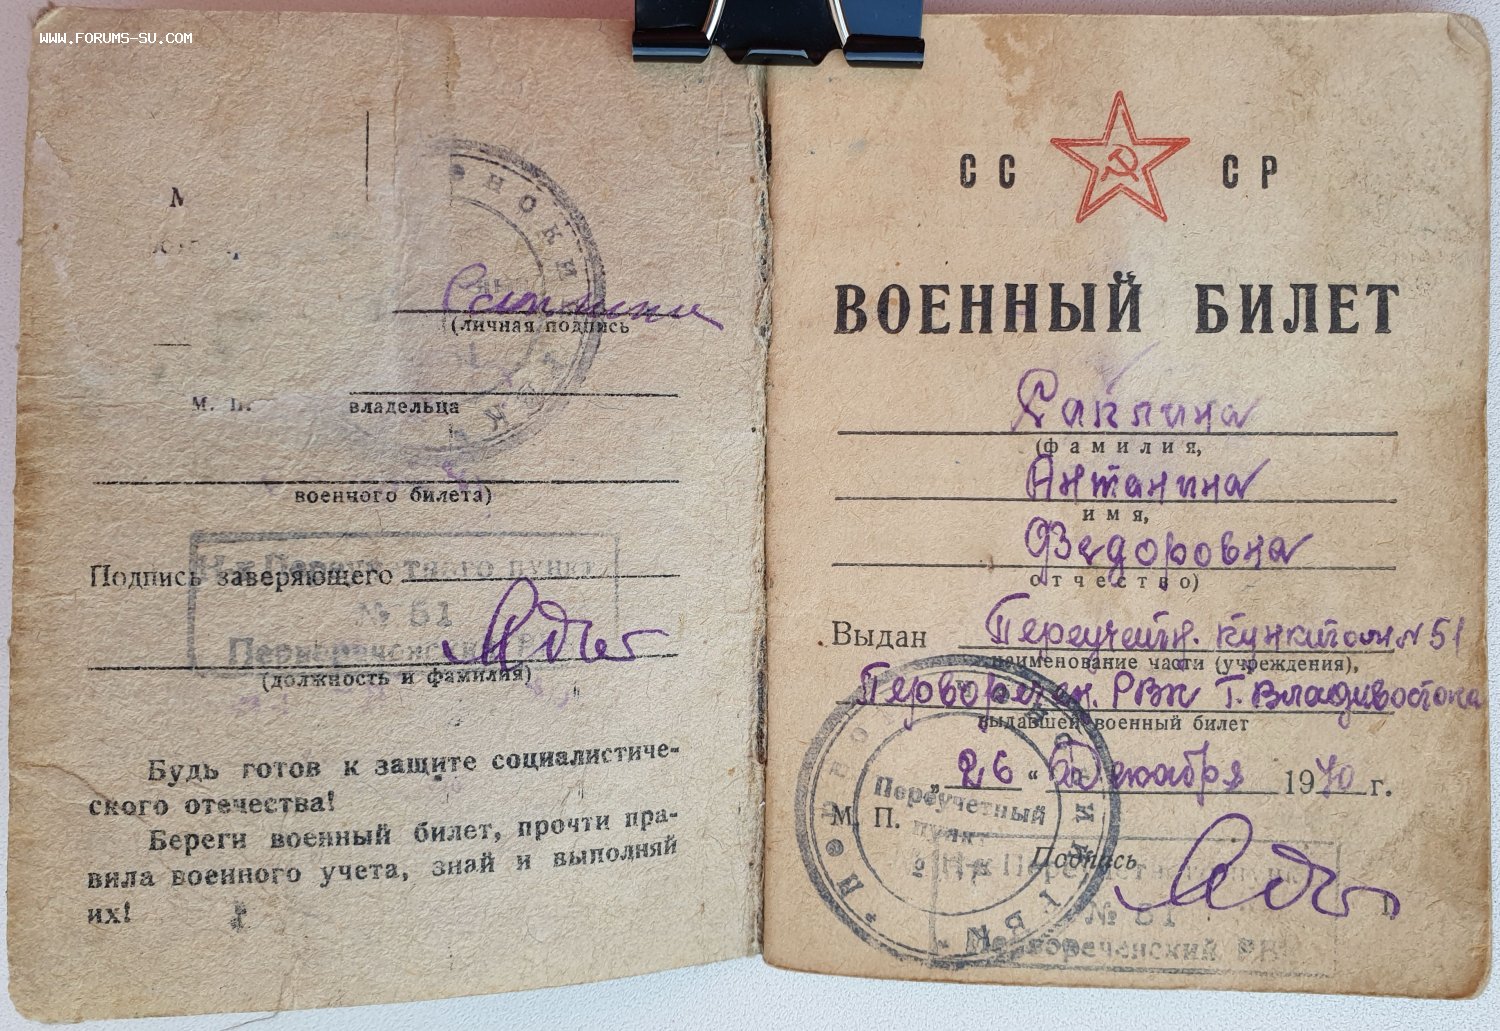 WWW.FORUMS-SU.COM
(личная подпись
М. П. владельца
военного билета)
Подпись заверяющего
Н-к Переучетного пункта
№ 51
Первореченский РВК
(должность и фамилия)
Будь готов к защите социалистиче-
ского отечества!
Береги военный билет, прочти пра-
вила военного учета, знай и выполняй
их!
СС СР
ВОЕННЫЙ БИЛЕТ
(фамилия,
Антанина
имя,
Федоровна
отчество)
Выдан Переучетн. пунктом №51
наименование части (учреждения),
Первореген. РВК г. Владивостока
выдавшей военный билет
„26“ Декабря 1970 г.
М. П.
Переучетный
пункт
Подпись
Н-к Переучетного пункта
№ 51
Первореченский РВК